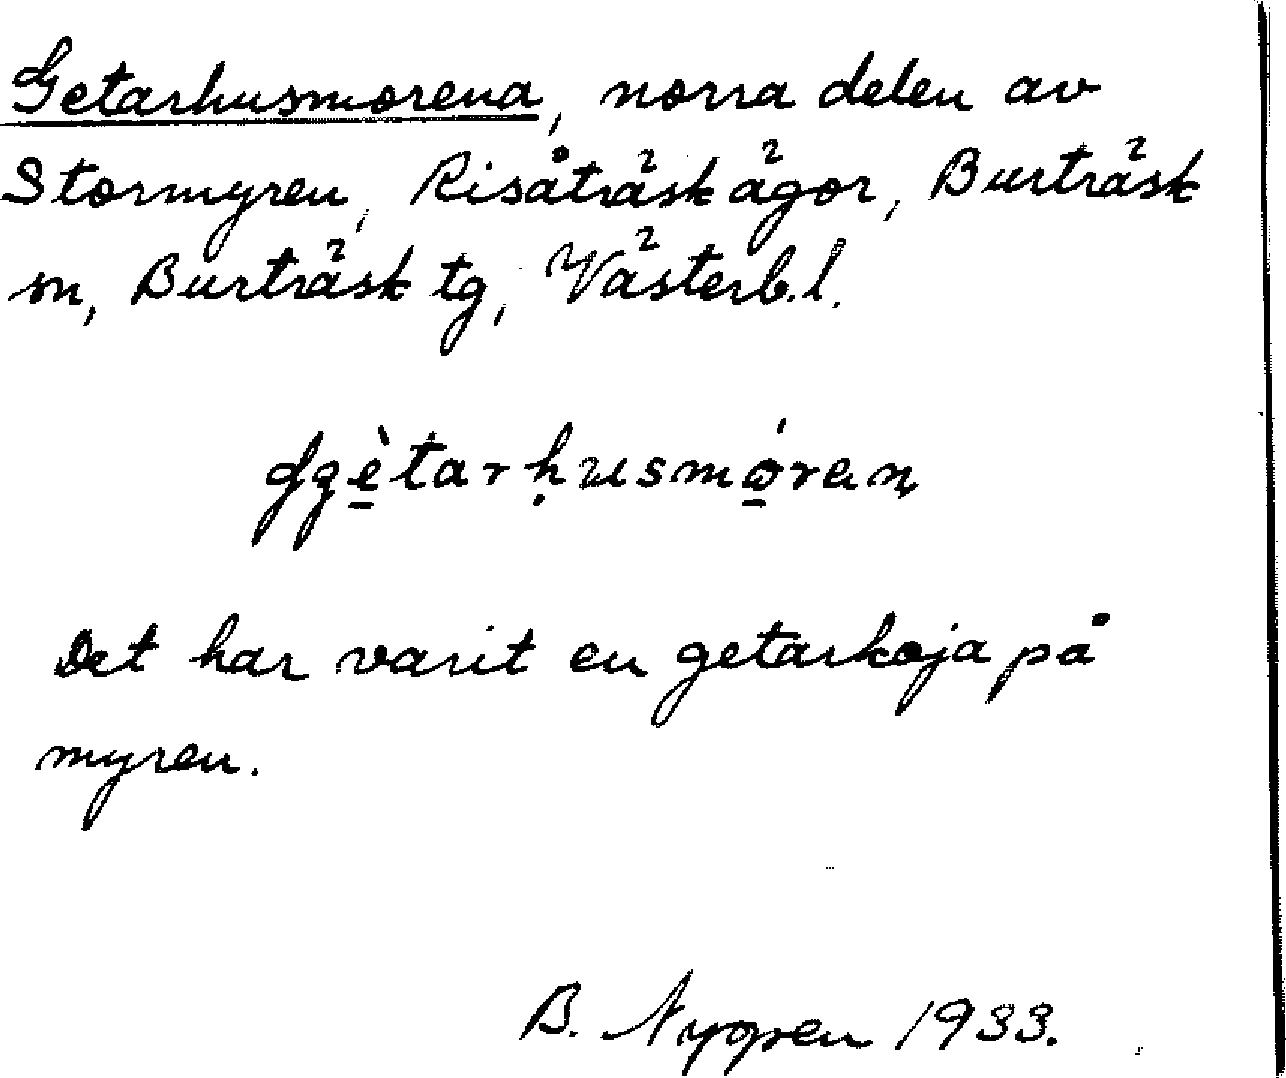 Getarhusmorena, norra delen av
Stormyren, Risåträsk ägor, Burträsk
sn, Burträsk tg, Västerb.l.
Det har varit en getarkoja på
myren.
B. Nygren 1933.